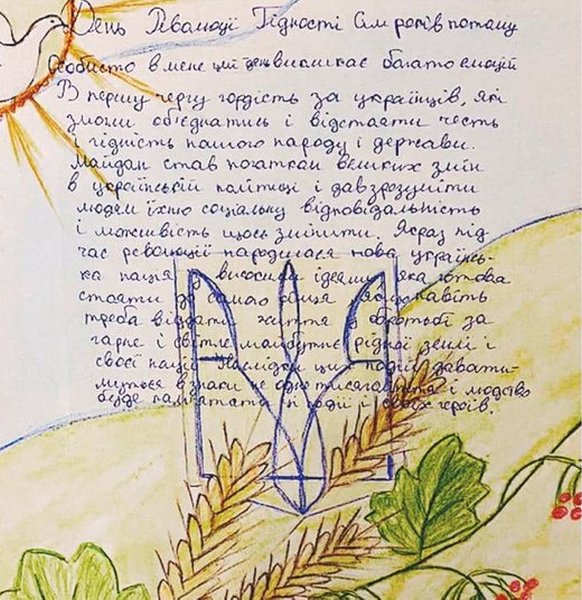 День Революції Гідності Сім років потому
Особисто в мене цей день викликає багато емоцій
В першу чергу гордість за українців, які
змогли об'єднатись і відстояти честь
і гідність нашого народу і держави.
Майдан став початком великих змін
в українській політиці і дав зрозуміти
людям їхню соціальну відповідальність
і можливість щось змінити. Якраз під
час революції народилася нова українсь-
ка нація з високими ідеями, яка готова
стояти до самого кінця, навіть
треба віддати життя у боротьбі за
гарне і світле майбутнє рідної землі і
своєї нації. Наслідки цих подій давати-
муться взнаки не одне тисячаліття і людство
буде памятати ці події і своїх героїв.